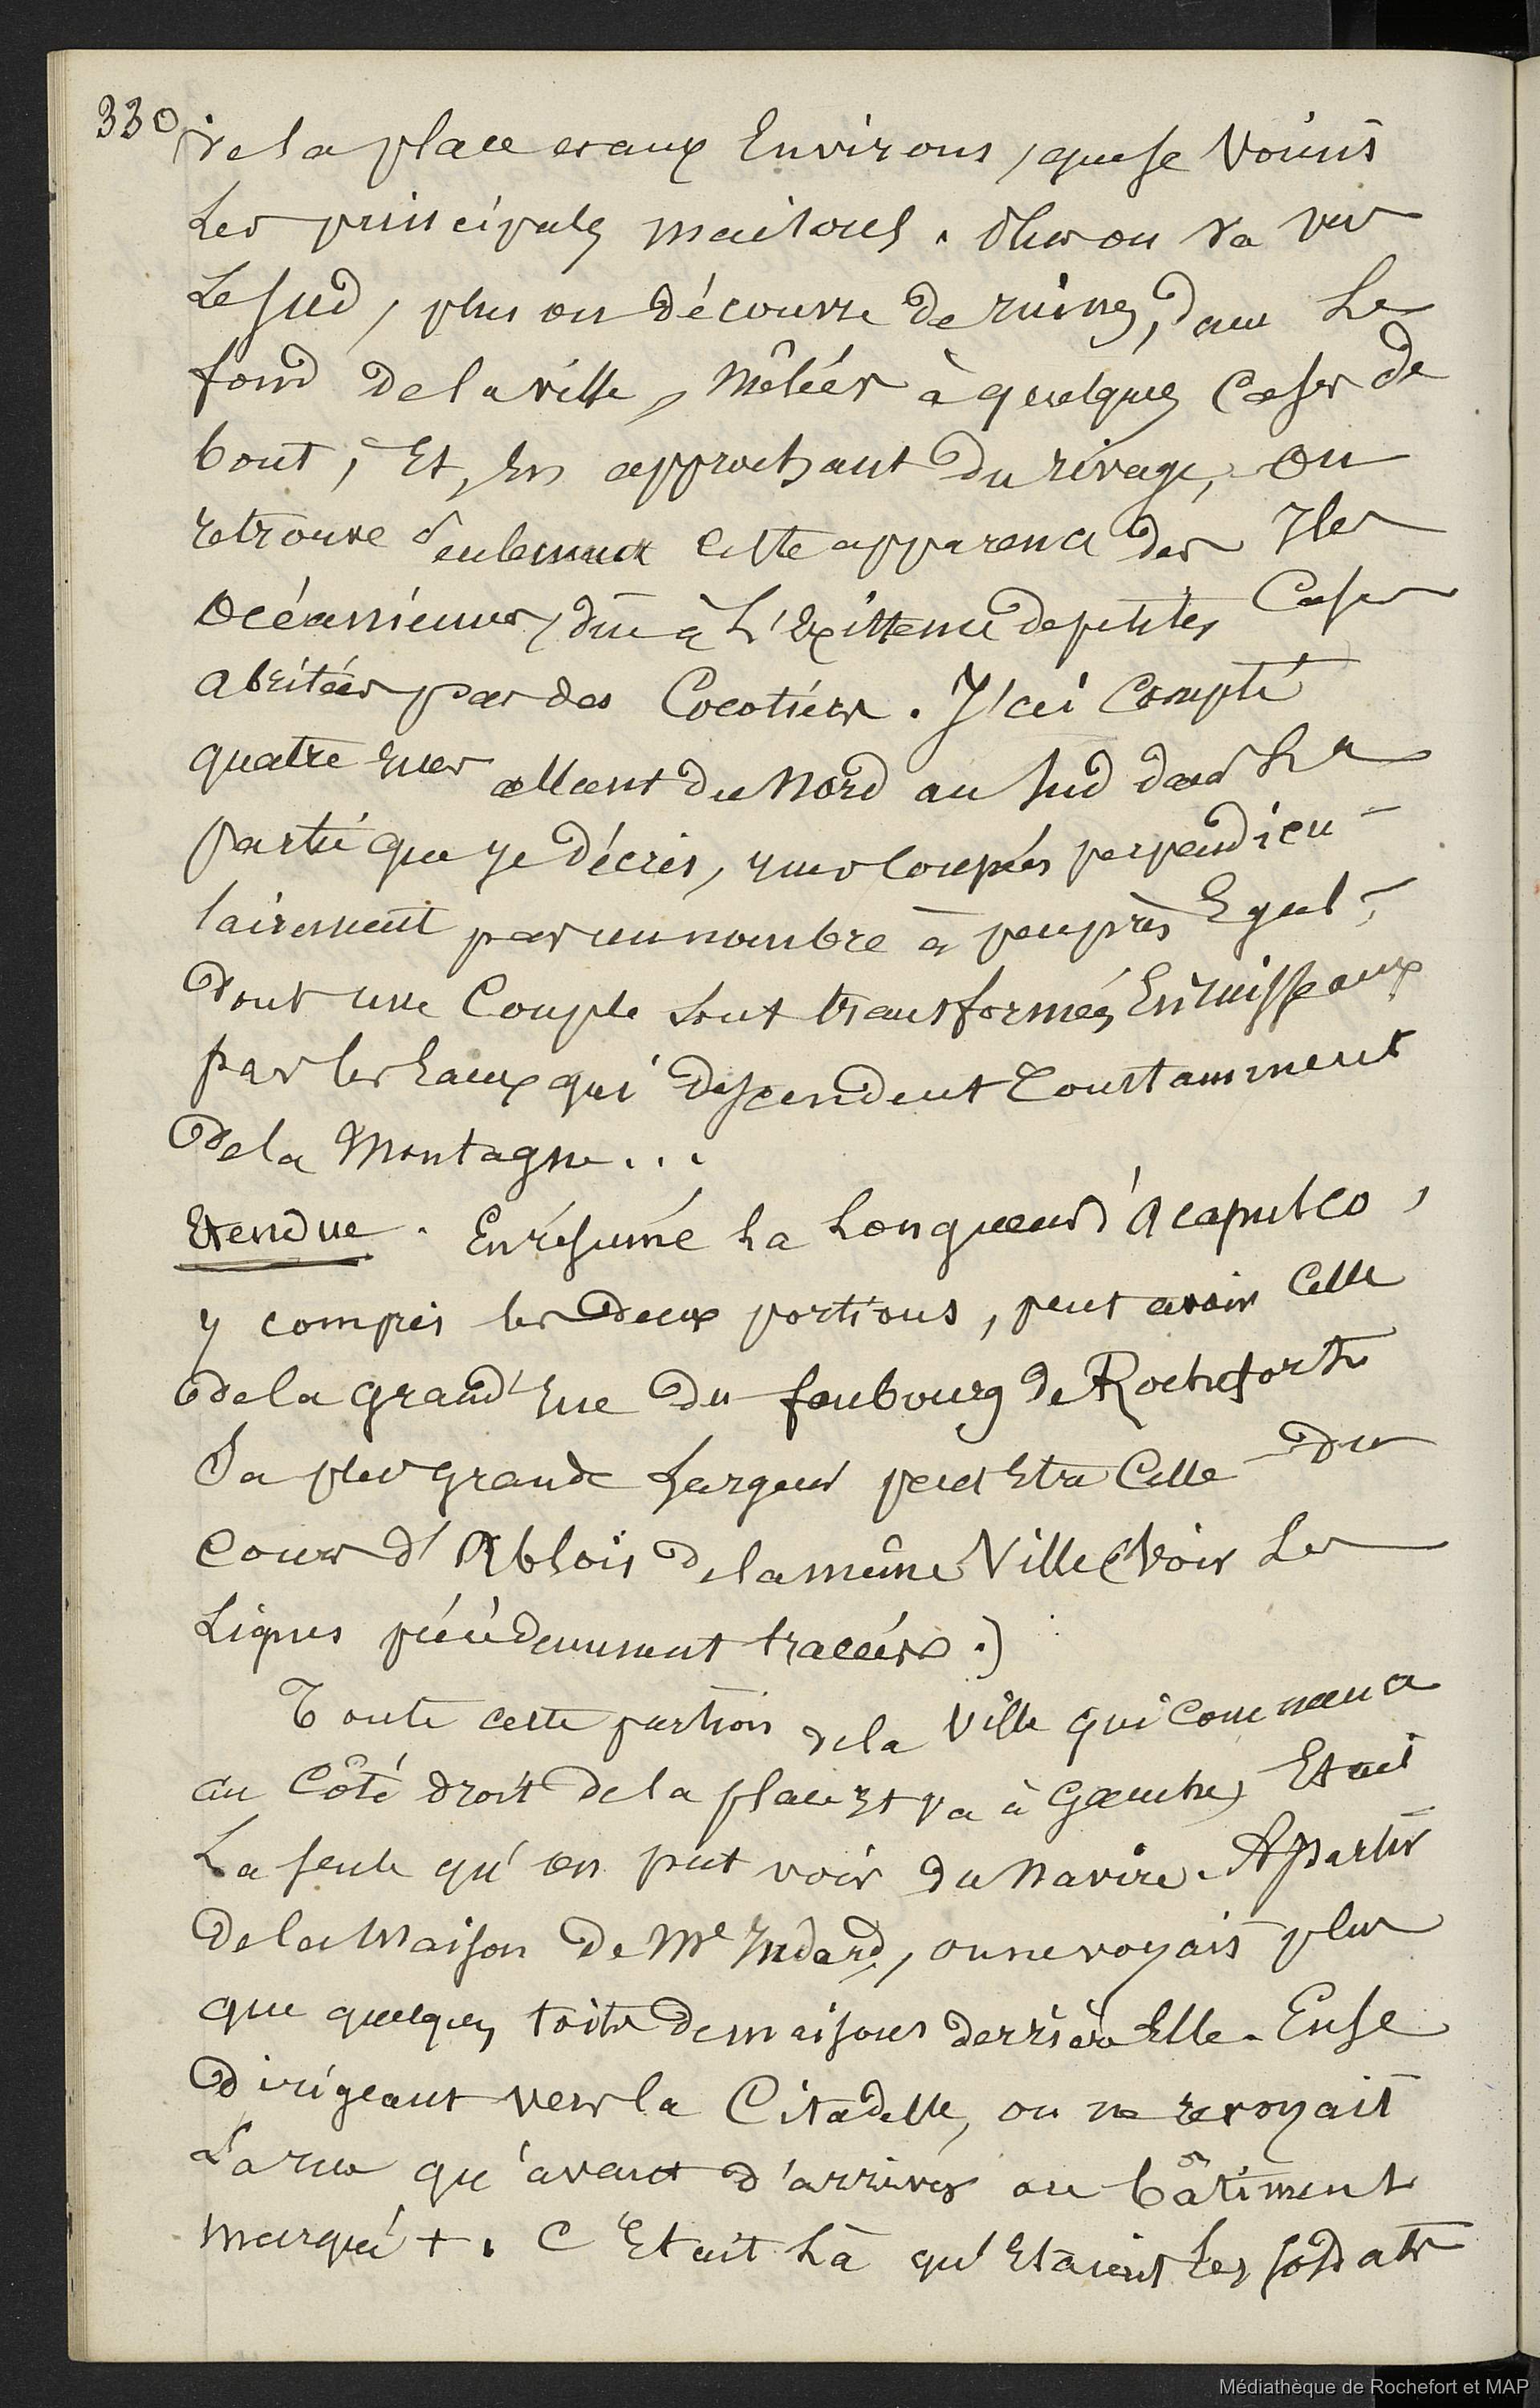 330
de la place et aux Environs, que se voient
Les principales maisons. Plus on va vers
Le Sud, plus on découvre de ruines, dans Le
fond de la ville, mêlées à quelques Cases de
bout; Et, En approchant du rivage, on
retrouve seulement cette apparence des Iles
Océaniennes, due à L'Existence de petites Cases
abritées par des Cocotiers. J'ai Compté
quatre rues allant du Nord au Sud dans La
partie que je décris, rues coupées perpendicu-
lairement par un nombre à peu près Egal;
Dont une Couple sont transformées En ruisseaux
par les Eaux qui descendent Constamment
De la Montagne...
Etendue. En résumé La Longueur d'Acapulco,
y compris les deux portions, peut avoir Celle
de la grand'rue du faubourg de Rochefort
Sa plus grande Largeur peut Etre Celle du
Cours d'Ablois de la même Ville (Voir Les
Lignes précédemment tracées.)
Toute cette portion de la Ville qui commence
au Côté droit de la place Et va à Gauche, Etait
La seule qu'on put voir du Navire. A partir
De la Maison de Mr Indard, on ne voyait plus
que quelques toits de maisons derrière Elle. En se
Dirigeant vers la Citadelle, on ne revoyait
La rue qu'avant d'arriver au bâtiment
marqué +. C'Etait Là qu'Etaient Les soldats
Médiathèque de Rochefort et MAP